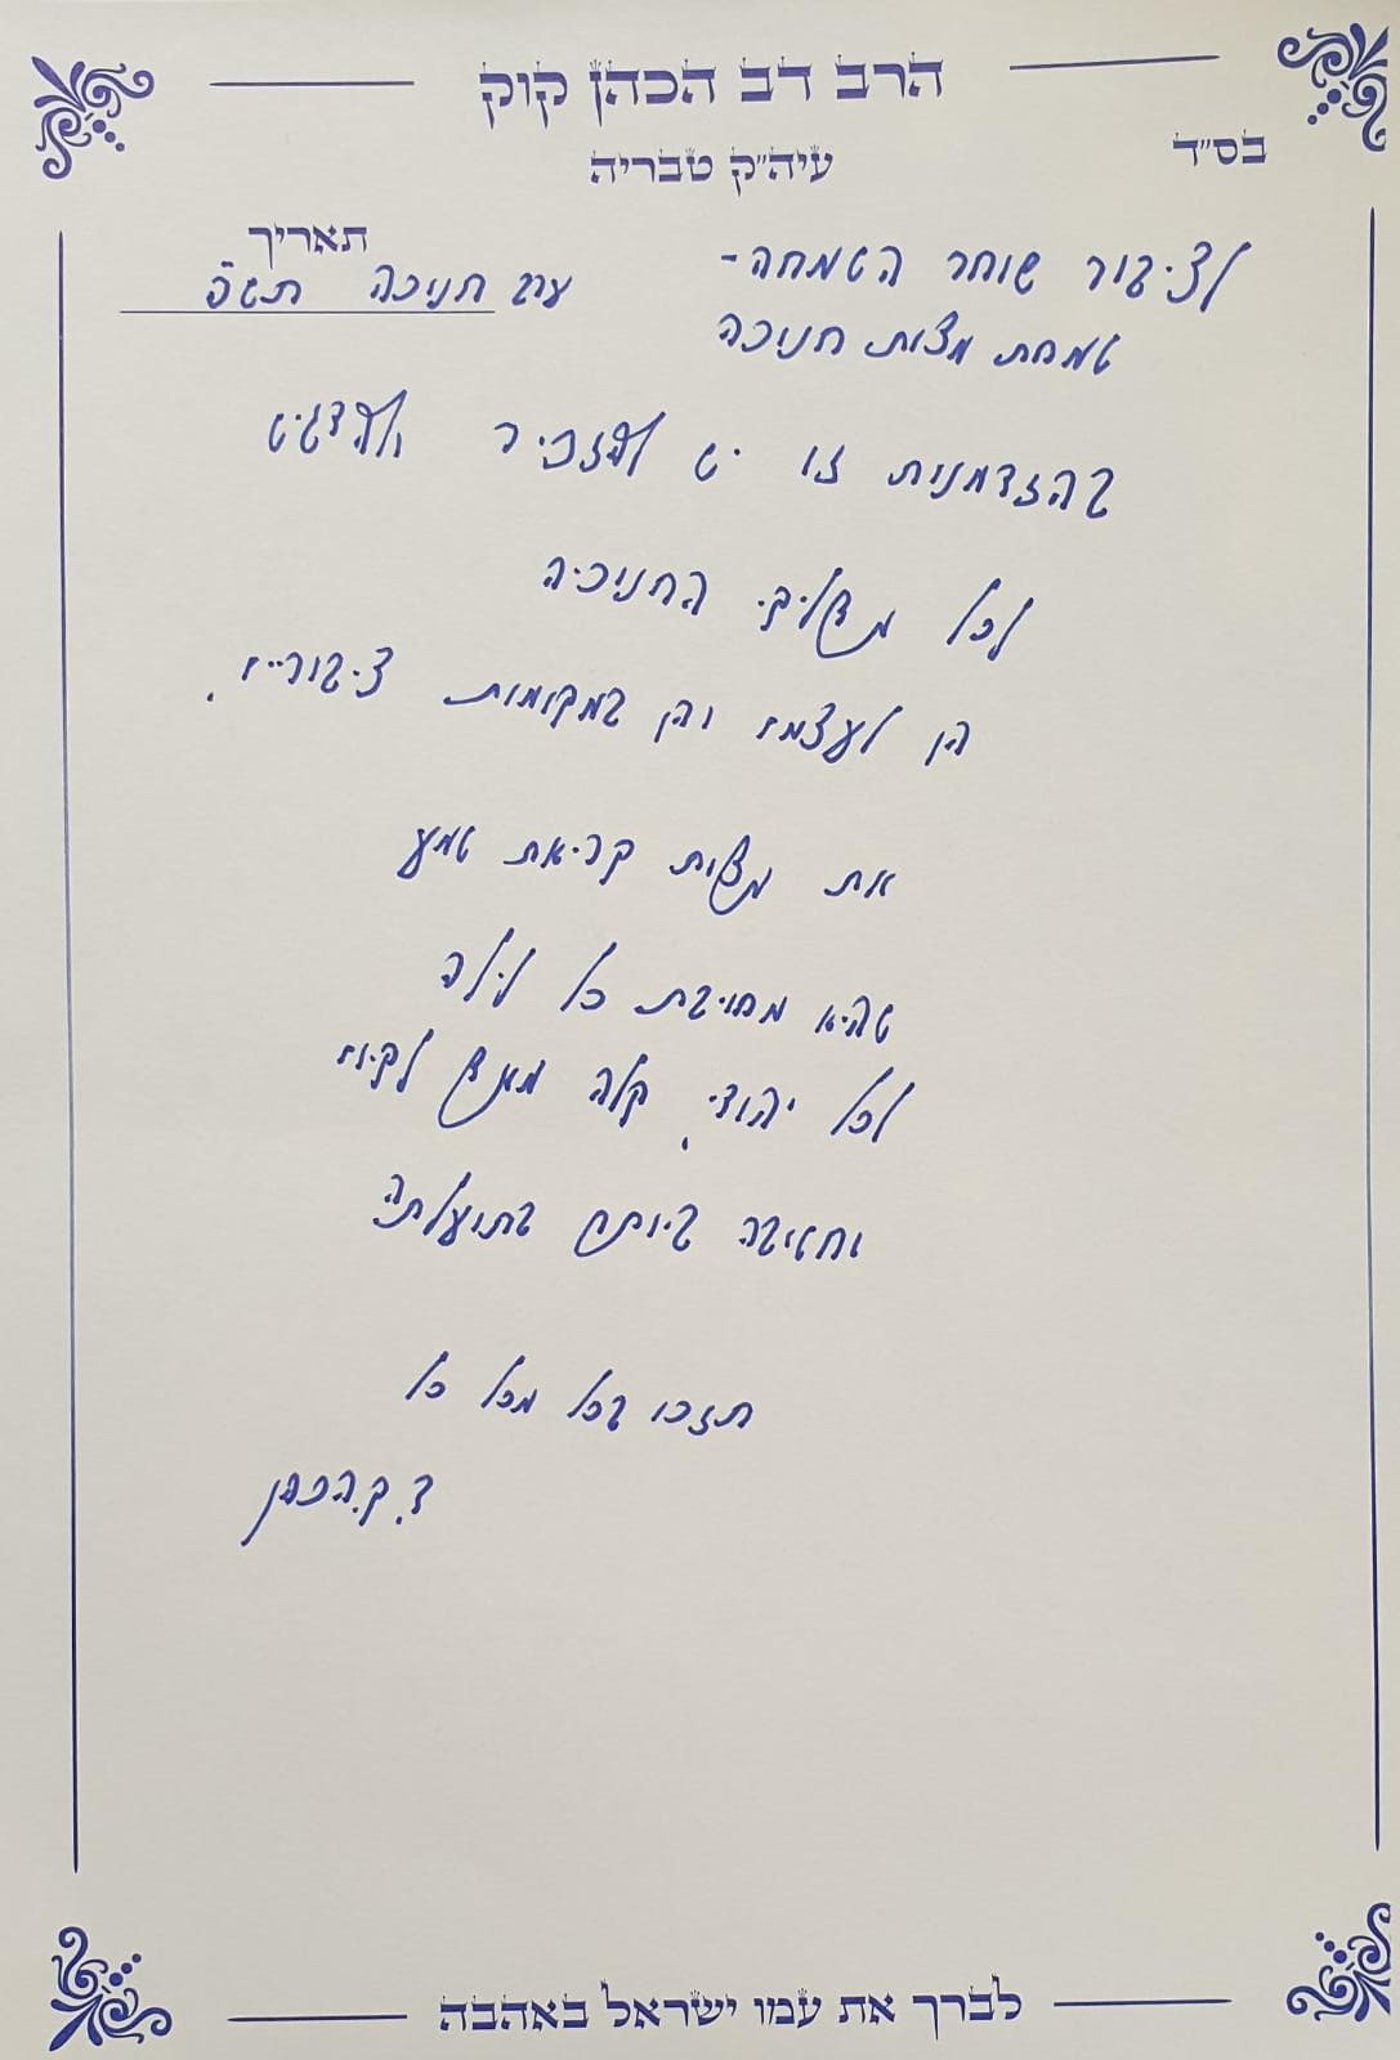 הרב דב הכהן קוק
בס״ד
עיה״ק טבריה
תאריך
ערב חנוכה תש״פ
לציבור שוחר השמחה-
שמחת מצות חנוכה
בהזדמנות זו יש להזכיר ולהדגיש
לכל מדליקי החנוכיה
הן לעצמו והן במקומות ציבוריים.
את מצות קריאת שמע
שהיא מחויבת כל לילה
לכל יהודי, קלה מאד לקיום
וחשובה ביותר בתועלתה
תזכו בכל מכל כל
ד.ק.הכהן
לברך את עמו ישראל באהבה